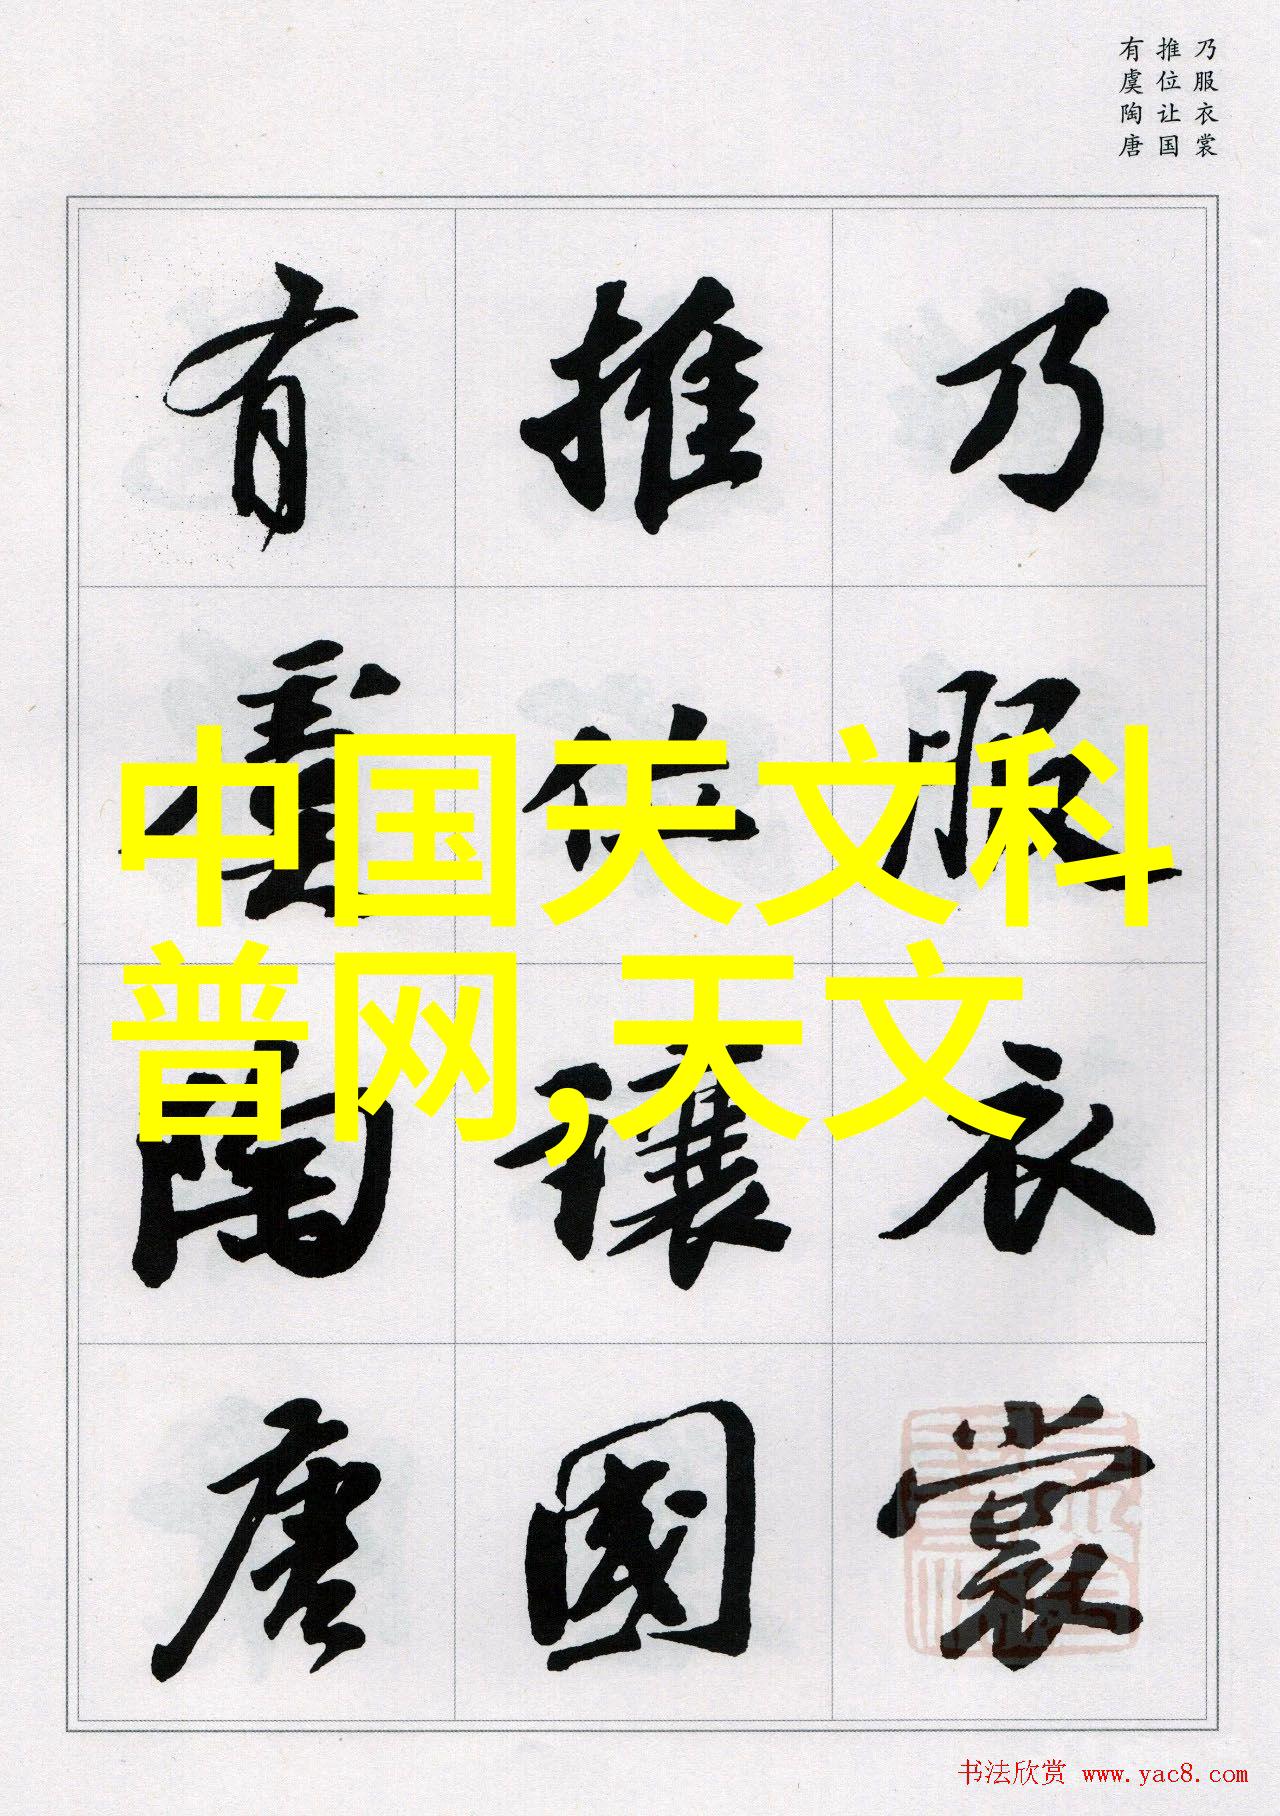 乃服衣裳
推位让国
有虞陶唐
乃服衣裳
推位讓國
有虞陶唐
中国天文科
普网,天文
书法欣赏 www.yac8.com